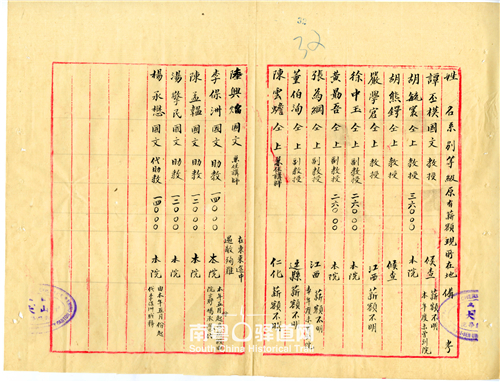 32
姓名 系別 等級 原有薪額 現時在地 備考
譚丕模 國文 教授 候查 薪額不明
胡毓寰 仝上 教授 三六〇〇〇 本院
胡熊鍔 仝上 教授 候查
嚴學宭 仝上 教授 江西 薪額不明
徐中玉 仝上 副教授 二六〇〇〇 本院
黃勖吾 仝上 副教授 二六〇〇〇 本院
張為綱 仝上 副教授 江西 薪額不明
董伯洵 仝上 副教授 連縣 薪額不明
陳雲 仝上 兼任講師 仁化 薪額不明
陸興焰 國文 兼任講師 在來東途中遇敵殉難
李保洲 國文 助教 一四〇〇〇 本院
陳孟韞 國文 助教 一二〇〇〇 本院
湯擎民 國文 助教 一二〇〇〇 本院
楊承懋 國文 代助教 一四〇〇〇 本院 由本年五月份起
南粤古驿道网
South China Historical Trail